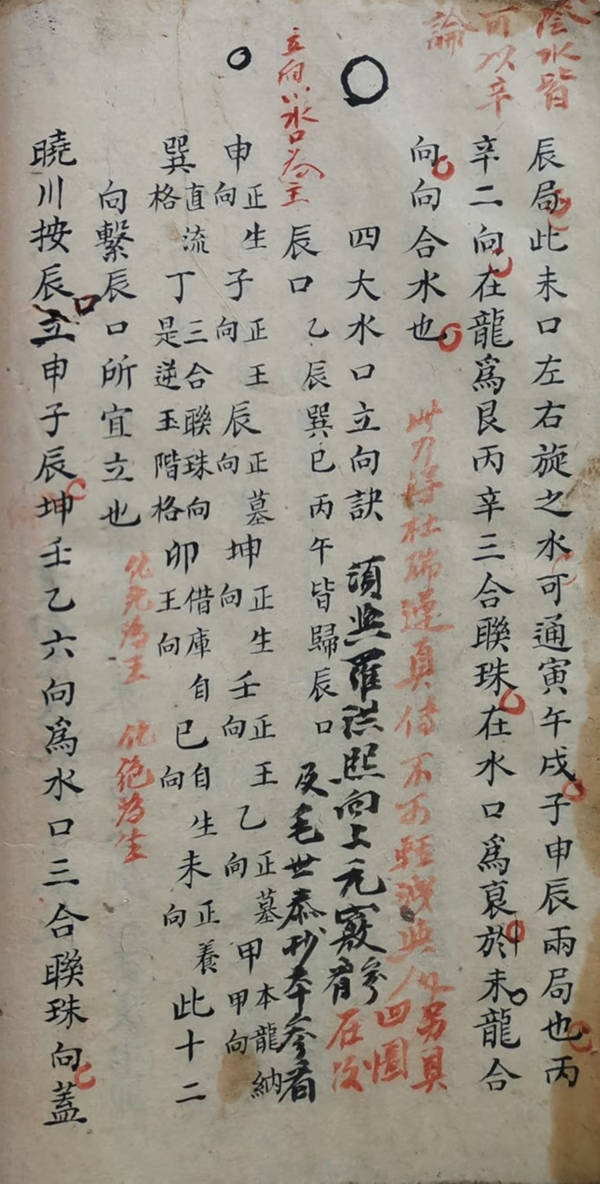 陰水皆
可以辛
論
辰局此未口左右旋之水可通寅午戌子申辰兩局也丙
辛二向在龍爲艮丙辛三合聯珠在水口爲哀於未龍合
向向合水也
此乃得杜瑞蓮真傳不可輕洩與人另具
四圖
在後
四大水口立向訣 須與羅洪熙向上元竅參看
立向以水口為主
辰口 乙辰巽巳丙午皆歸辰口 及毛世泰抄本參看
申向正生 子向正王 辰向正墓 坤向正生 壬向正王 乙向正墓 甲甲向本龍納
巽格直流 丁是逆玉階格三合聯珠向 卯王向借庫自 巳向自生 未向正養 此十二
向繫辰口所宜立也
化死為王 化絕為生
曉川按辰口立申子辰坤壬乙六向爲水口三合聯珠向蓋